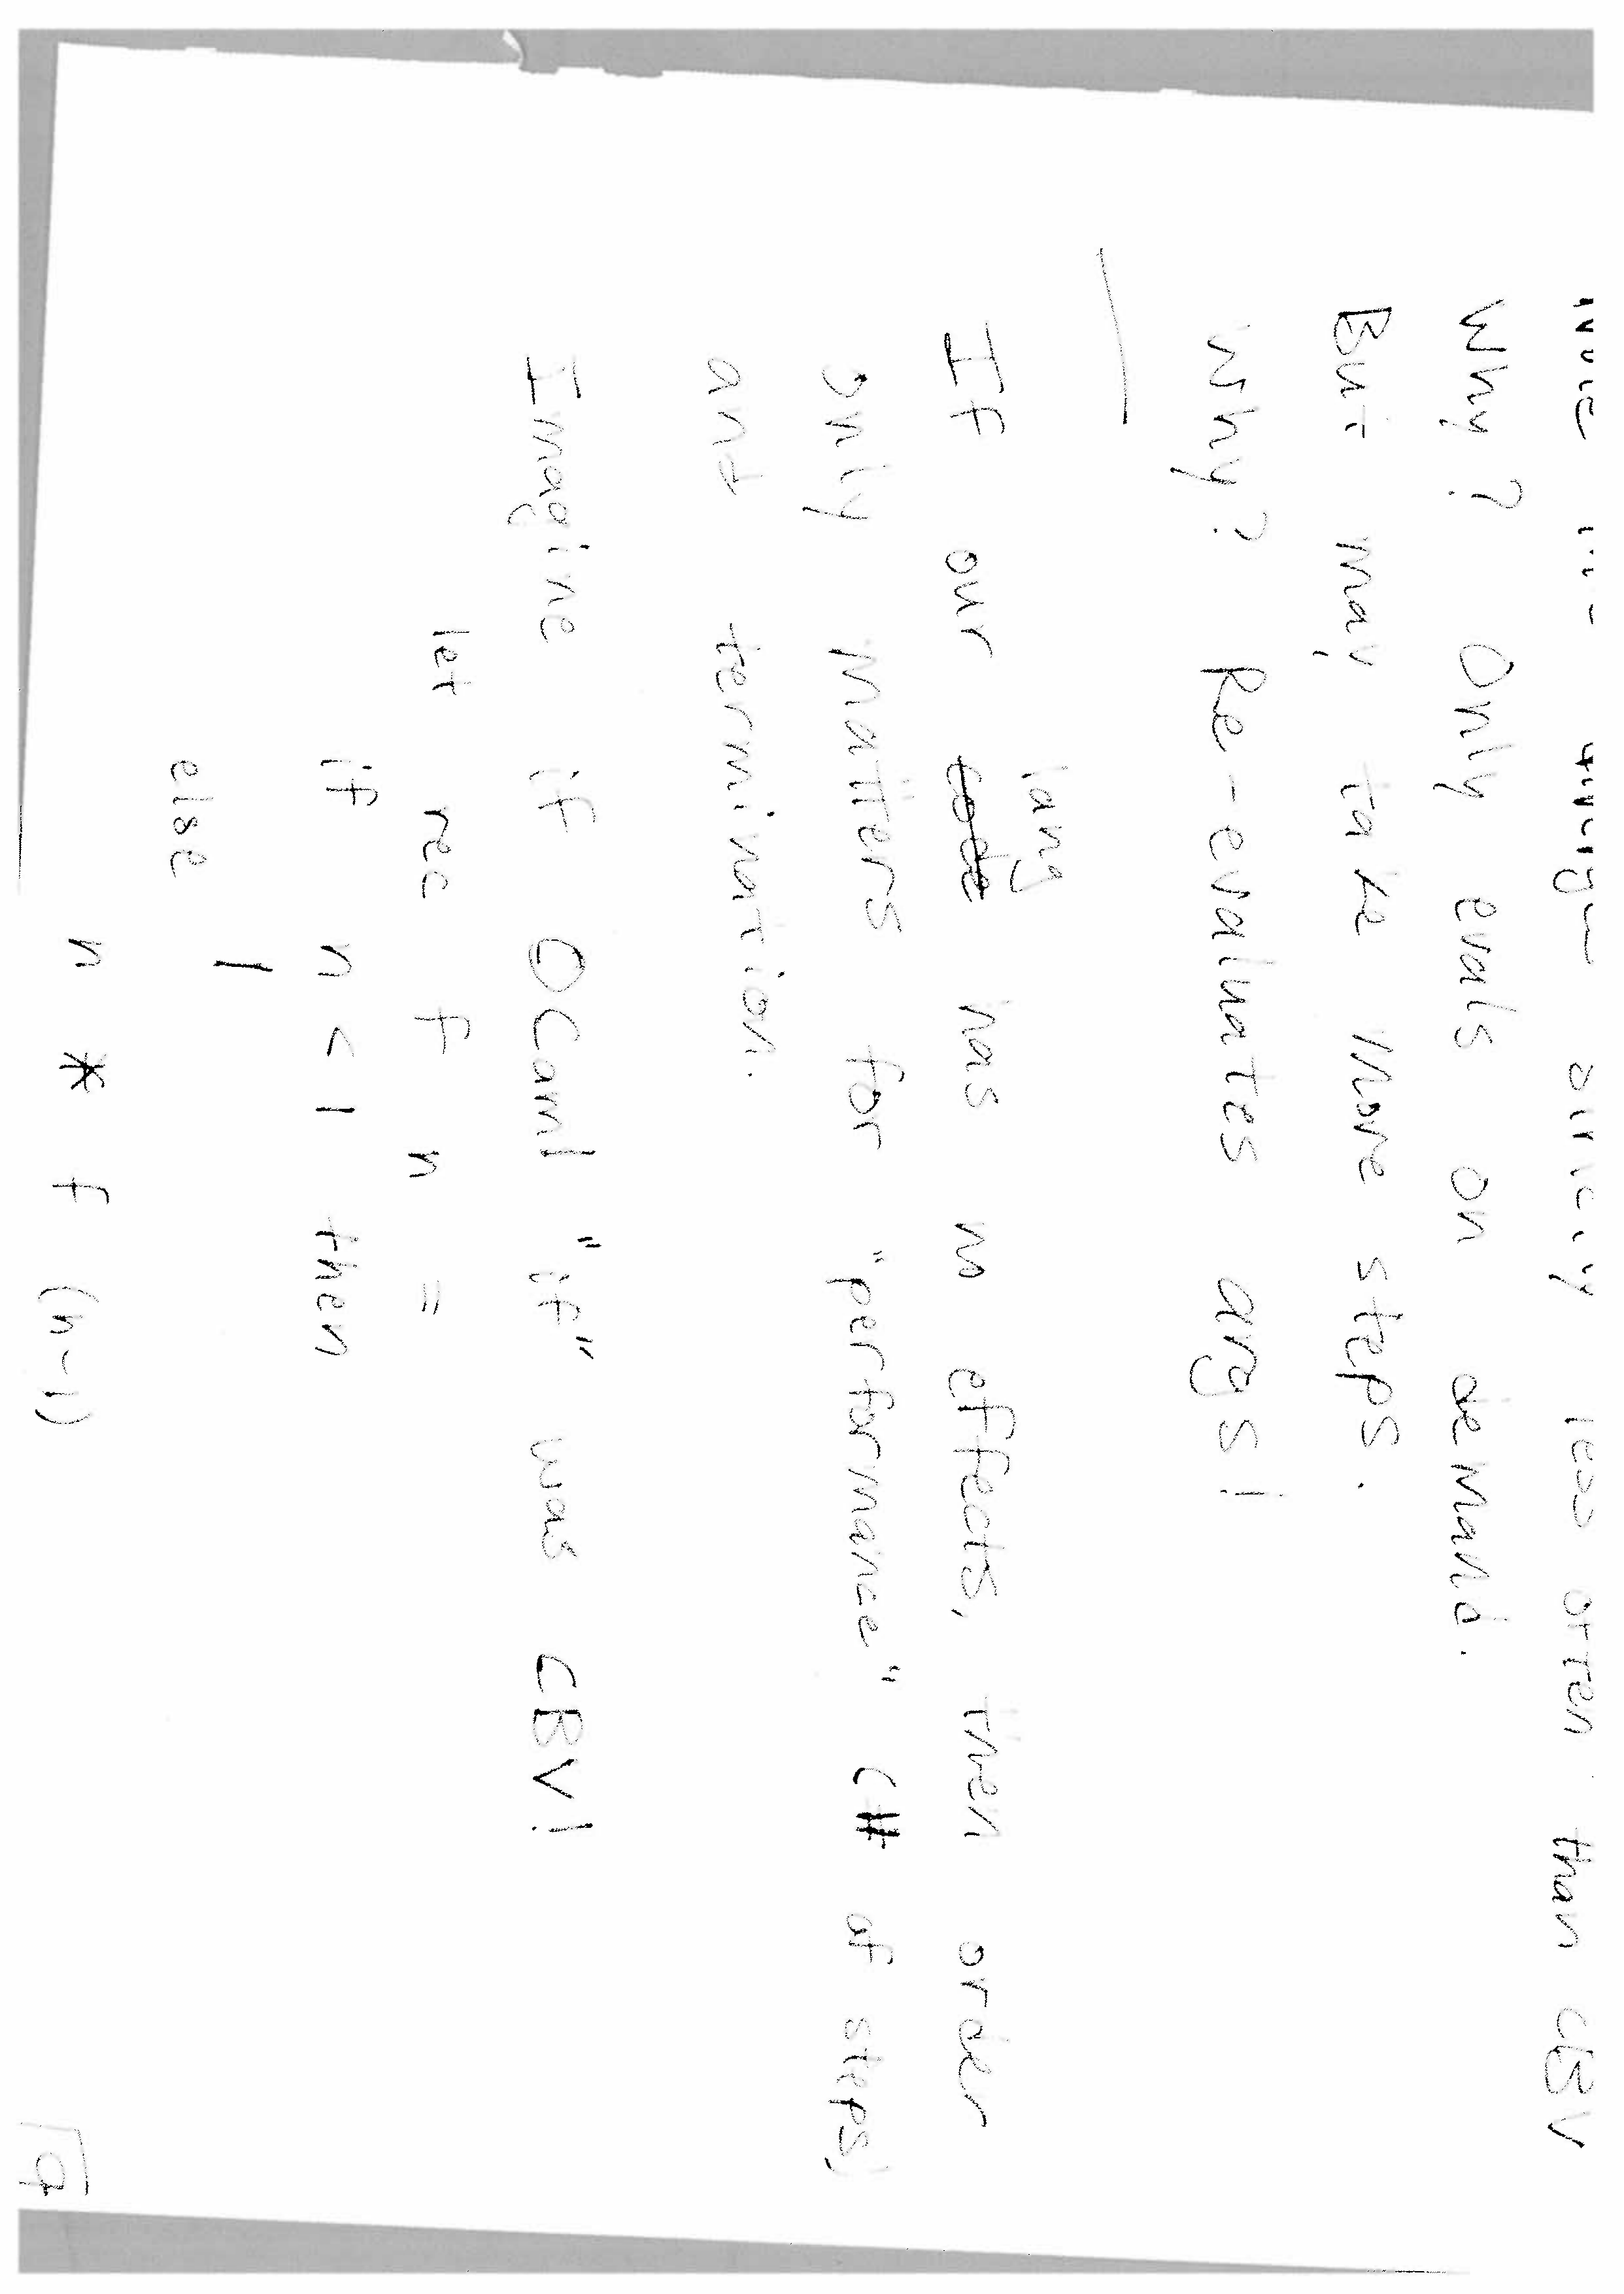 strictly less often than CBV
Why? Only evals on demand.
But may take more steps.
Why? Re-evaluates args!
lang
If our code has no effects, then order
only matters for "performance" (# of steps)
and termination.
Imagine if OCaml "if" was CBV!
let rec f n =
if n < 1 then
1
else
n * f (n-1)